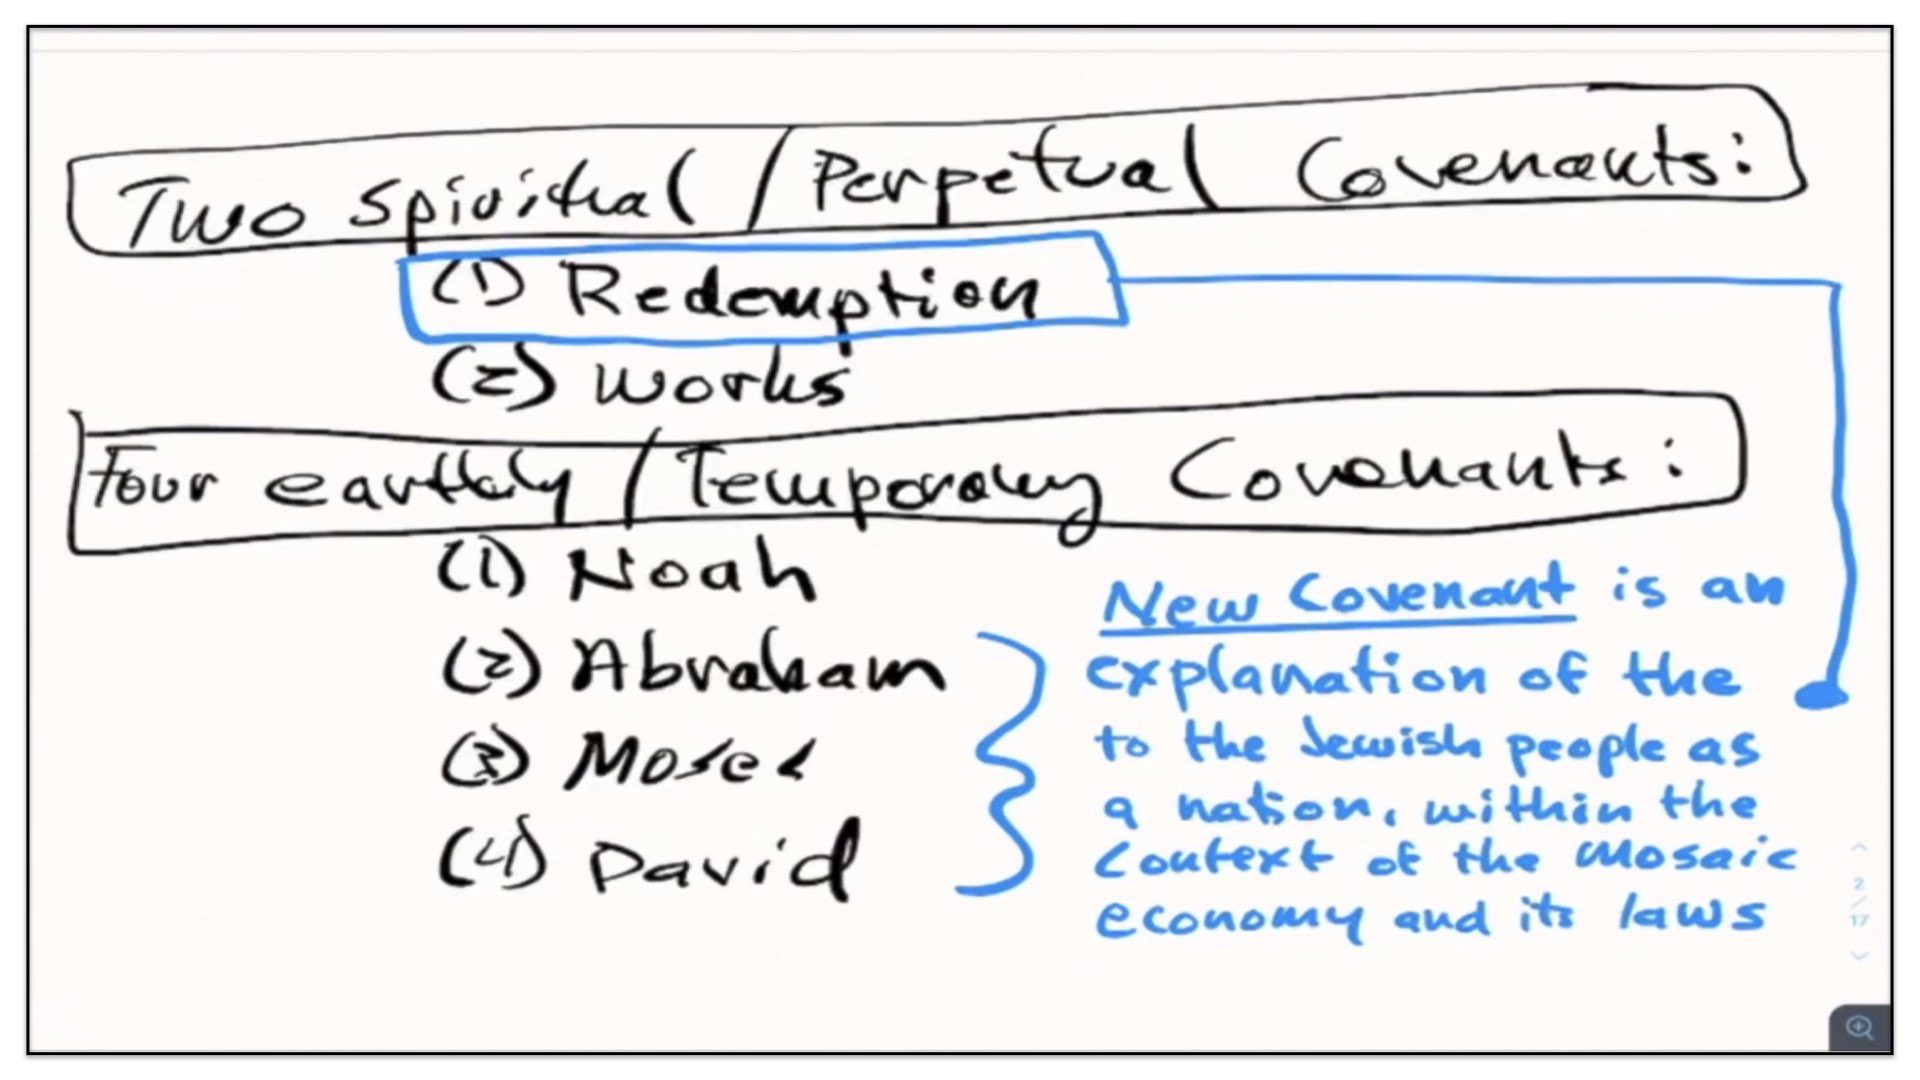 Two Spiritual / Perpetual Covenants:
(1) Redemption
(2) works
Four earthly / Temporary Covenants:
(1) Noah
(2) Abraham
(3) Moses
(4) David
New Covenant is an
explanation of the
to the Jewish people as
a nation, within the
context of the mosaic
economy and its laws
2
/
17